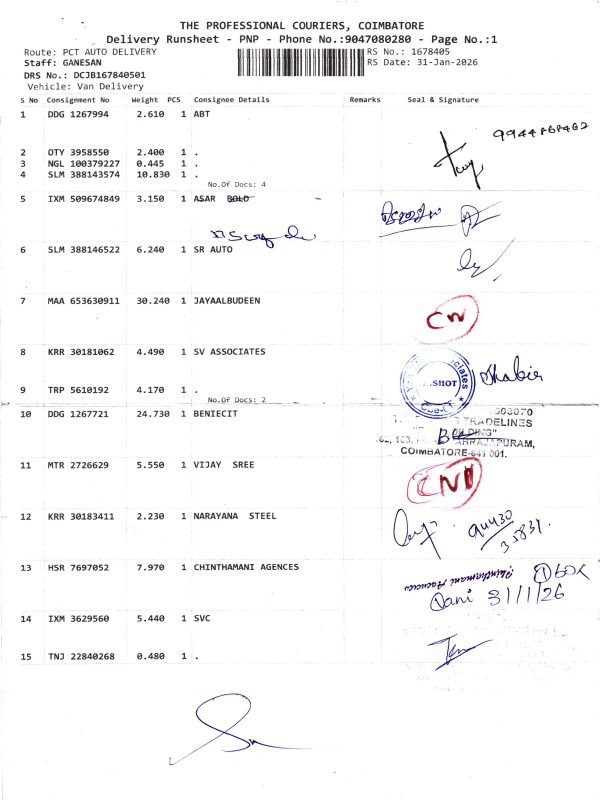 THE PROFESSIONAL COURIERS, COIMBATORE
Delivery Runsheet - PNP - Phone No.:9047080280 - Page No.:1
Route: PCT AUTO DELIVERY
RS No.: 1678405
Staff: GANESAN
RS Date: 31-Jan-2026
DRS No.: DCJB167840501
Vehicle: Van Delivery
S No Consignment No Weight PCS Consignee Details Remarks Seal & Signature
1 DDG 1267994 2.610 1 ABT
2 OTY 3958550 2.400 1 .
3 NGL 100379227 0.445 1 .
4 SLM 388143574 10.830 1 .
No.Of Docs: 4
5 IXM 509674849 3.150 1 ASAR BOLD
6 SLM 388146522 6.240 1 SR AUTO
7 MAA 653630911 30.240 1 JAYAALBUDEEN
CN
8 KRR 30181062 4.490 1 SV ASSOCIATES
SHOT
9 TRP 5610192 4.170 1 .
No.Of Docs: 2
10 DDG 1267721 24.730 1 BENIECIT
TRADELINES
COIMBATORE-641 001.
11 MTR 2726629 5.550 1 VIJAY SREE
12 KRR 30183411 2.230 1 NARAYANA STEEL
13 HSR 7697052 7.970 1 CHINTHAMANI AGENCES
Chinthamani Agencies
1 box
31/1/26
14 IXM 3629560 5.440 1 SVC
15 TNJ 22840268 0.480 1 .